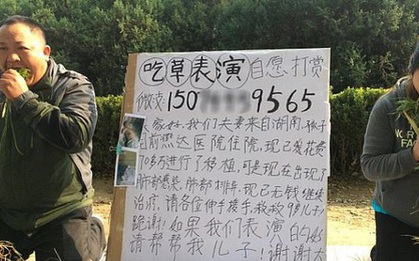 吃草表演 自愿打赏
微支 150 9565
大家好,我们夫妻来自湖南,孩子
目前燕达医院住院,现已发花费
70多万进行了移植,可是现在出现了
肺部感染,肺部排斥,现已无钱继续
治疗,请各位伸手援手救救9岁儿子!
跪谢!如果我们表演的好
请帮帮我儿子!谢谢大